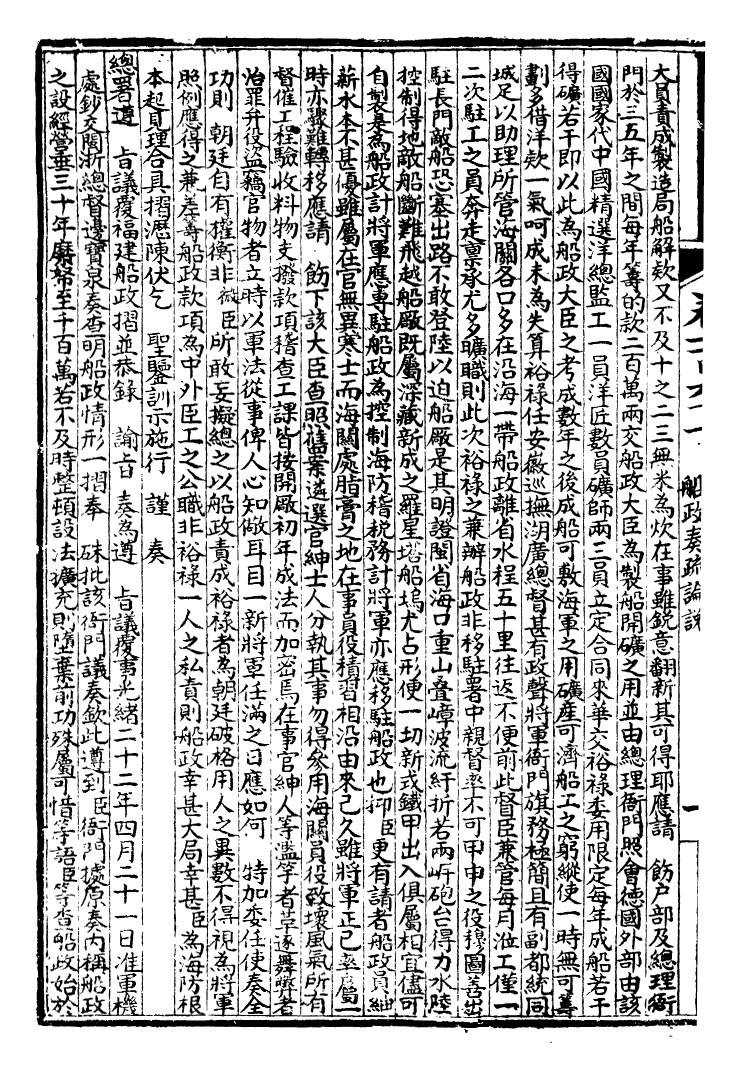 大員責成製造局船解欵又不及十之二三無米為炊在事雖銳意翻新其可得耶應請　飭户部及總理衙
門於三五年之間每年籌的款二百萬兩交船政大臣為製船開礦之用並由總理衙門照會德國外部由該
國國家代中國精選洋總監工一員洋匠數員礦師兩三員立定合同來華交裕祿委用限定每年成船若干
得礦若干即以此為船政大臣之考成數年之後成船可敷海軍之用礦產可濟船工之窮縱使一時無可籌
劃多借洋欵一氣呵成未為失算裕祿任安徽巡撫湖廣總督甚有政聲將軍衙門旗務極簡且有副都統同
城足以助理所管海關各口多在沿海一帶船政離省水程五十里往返不便前此督臣兼管每月涖工僅一
二次駐工之員奔走禀承尤多曠職則此次裕祿之兼辦船政非移駐署中親督率不可甲申之役穆圖善出
駐長門敵船恐塞出路不敢登陸以迫船廠是其明證閩省海口重山叠嶂波流紆折若兩岸砲台得力水陸
控制得地敵船斷難飛越船廠既屬深藏新成之羅星塔船塢尤占形便一切新式鐵甲出入俱屬相宜儘可
自製臭為船政計將軍應專駐船政為控制海防稽稅務計將軍亦應移駐船政也抑臣更有請者船政員紳
薪水本不甚優雖屬在官無異寒士而海關處脂膏之地在事員役積習相沿由來已久雖將軍正已率屬一
時亦驟難轉移應請　飭下該大臣查照舊案遴選官紳士人分執其事勿得參用海關員役致壞風氣所有
督催工程驗收料物支撥款項稽查工課皆按開廠初年成法而加密焉在事官紳人等濫竽者革逐舞弊者
治罪并役盜竊官物者立時以軍法從事俾人心知儆耳目一新將軍任滿之日應如何　特加委任使奏全
功則　朝廷自有權衡非微臣所敢妄擬總之以船政責成裕祿者為朝廷破格用人之異數不得視為將軍
照例應得之兼差籌船政款項為中外臣工之公職非裕祿一人之私責則船政幸甚大局幸甚臣為海防根
本起見理合具摺瀝陳伏乞　聖鑒訓示施行　謹　奏
總署遵　旨議覆福建船政摺並恭錄　諭旨　奏為遵　旨議覆事光緒二十二年四月二十一日准軍機
處鈔交閩浙總督邊寶泉奏查明船政情形一摺奉　硃批該衙門議奏欽此遵到臣衙門據原奏內稱船政
之設經營垂三十年縻帑至千百萬若不及時整頓設法擴充則墮棄前功殊屬可惜等語臣等查船政始於
船政奏疏論說
一